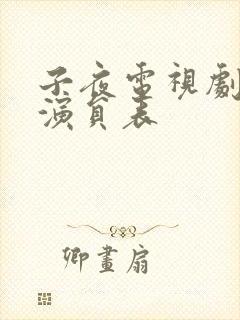 子夜電視劇
演員表
卿畫扇